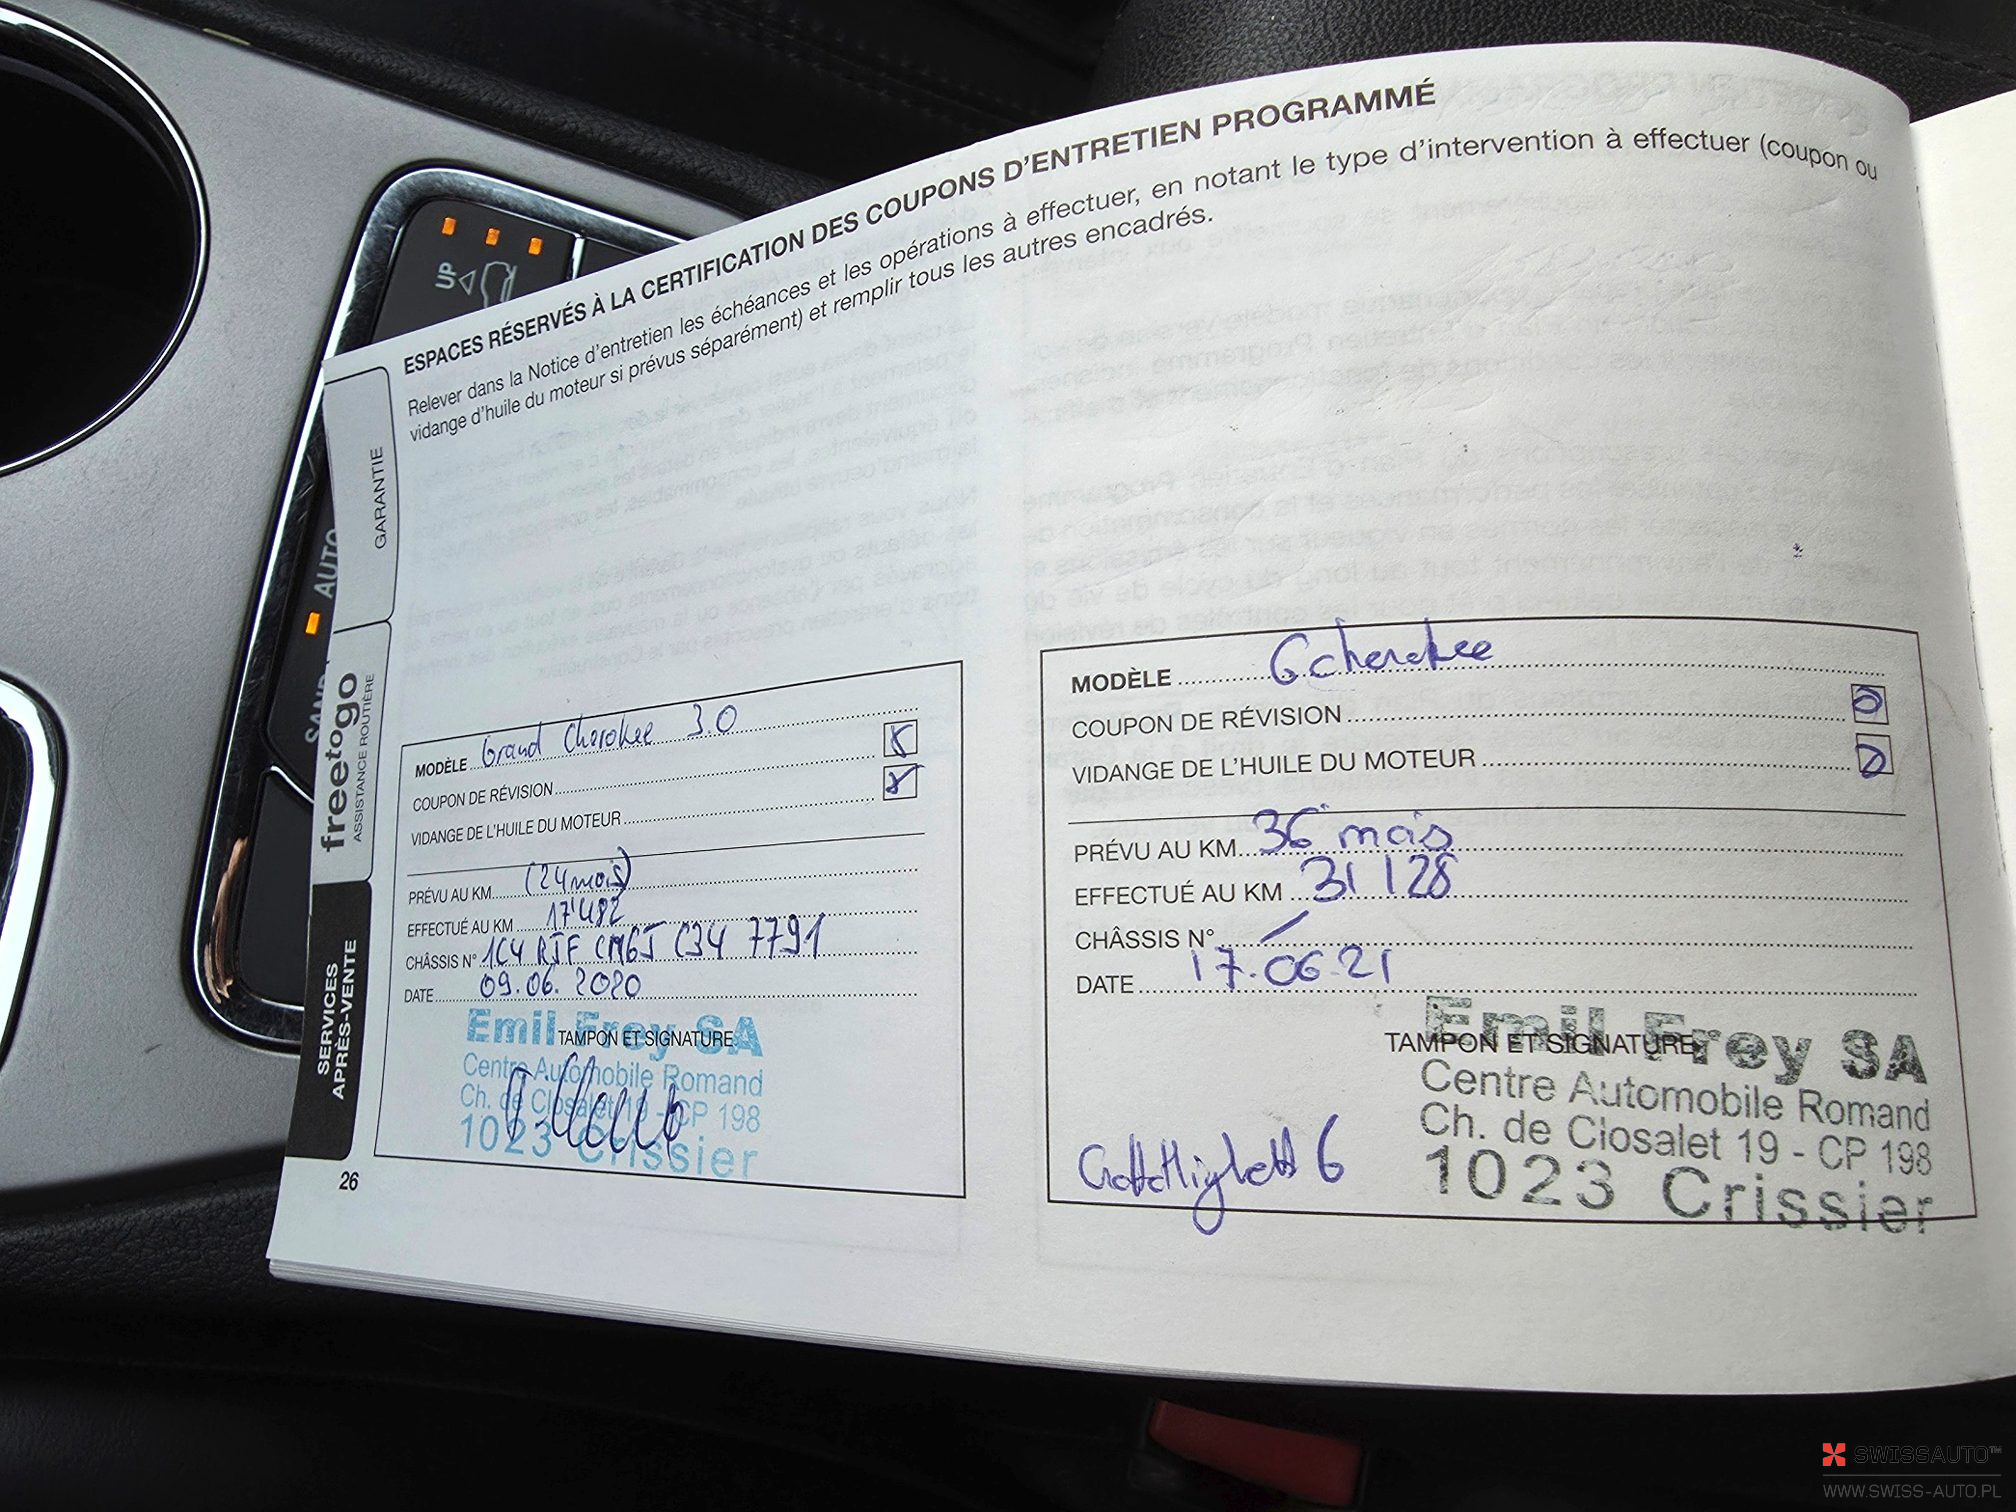 ESPACES RÉSERVÉS À LA CERTIFICATION DES COUPONS D'ENTRETIEN PROGRAMMÉ
Relever dans la Notice d'entretien les échéances et les opérations à effectuer, en notant le type d'intervention à effectuer (coupon ou
vidange d'huile du moteur si prévus séparément) et remplir tous les autres encadrés.
UP
AUTO
SAND
GARANTIE
freetogo
ASSISTANCE ROUTIÈRE
SERVICES
APRÈS-VENTE
MODÈLE Grand Cherokee 3.0
COUPON DE RÉVISION
VIDANGE DE L'HUILE DU MOTEUR
PRÉVU AU KM (24 mois)
EFFECTUÉ AU KM 17'482
CHÂSSIS N° 1C4 RJF CM6J C34 7791
DATE 09.06.2020
TAMPON ET SIGNATURE
Emil Frey SA
Centre Automobile Romand
Ch. de Closalet 19 - CP 198
1023 Crissier
26
MODÈLE G cherokee
COUPON DE RÉVISION
VIDANGE DE L'HUILE DU MOTEUR
PRÉVU AU KM 36 mois
EFFECTUÉ AU KM 31 128
CHÂSSIS N° /
DATE 17.06.21
TAMPON ET SIGNATURE
Emil Frey SA
Centre Automobile Romand
Ch. de Closalet 19 - CP 198
1023 Crissier
SWISSAUTO™
WWW.SWISS-AUTO.PL